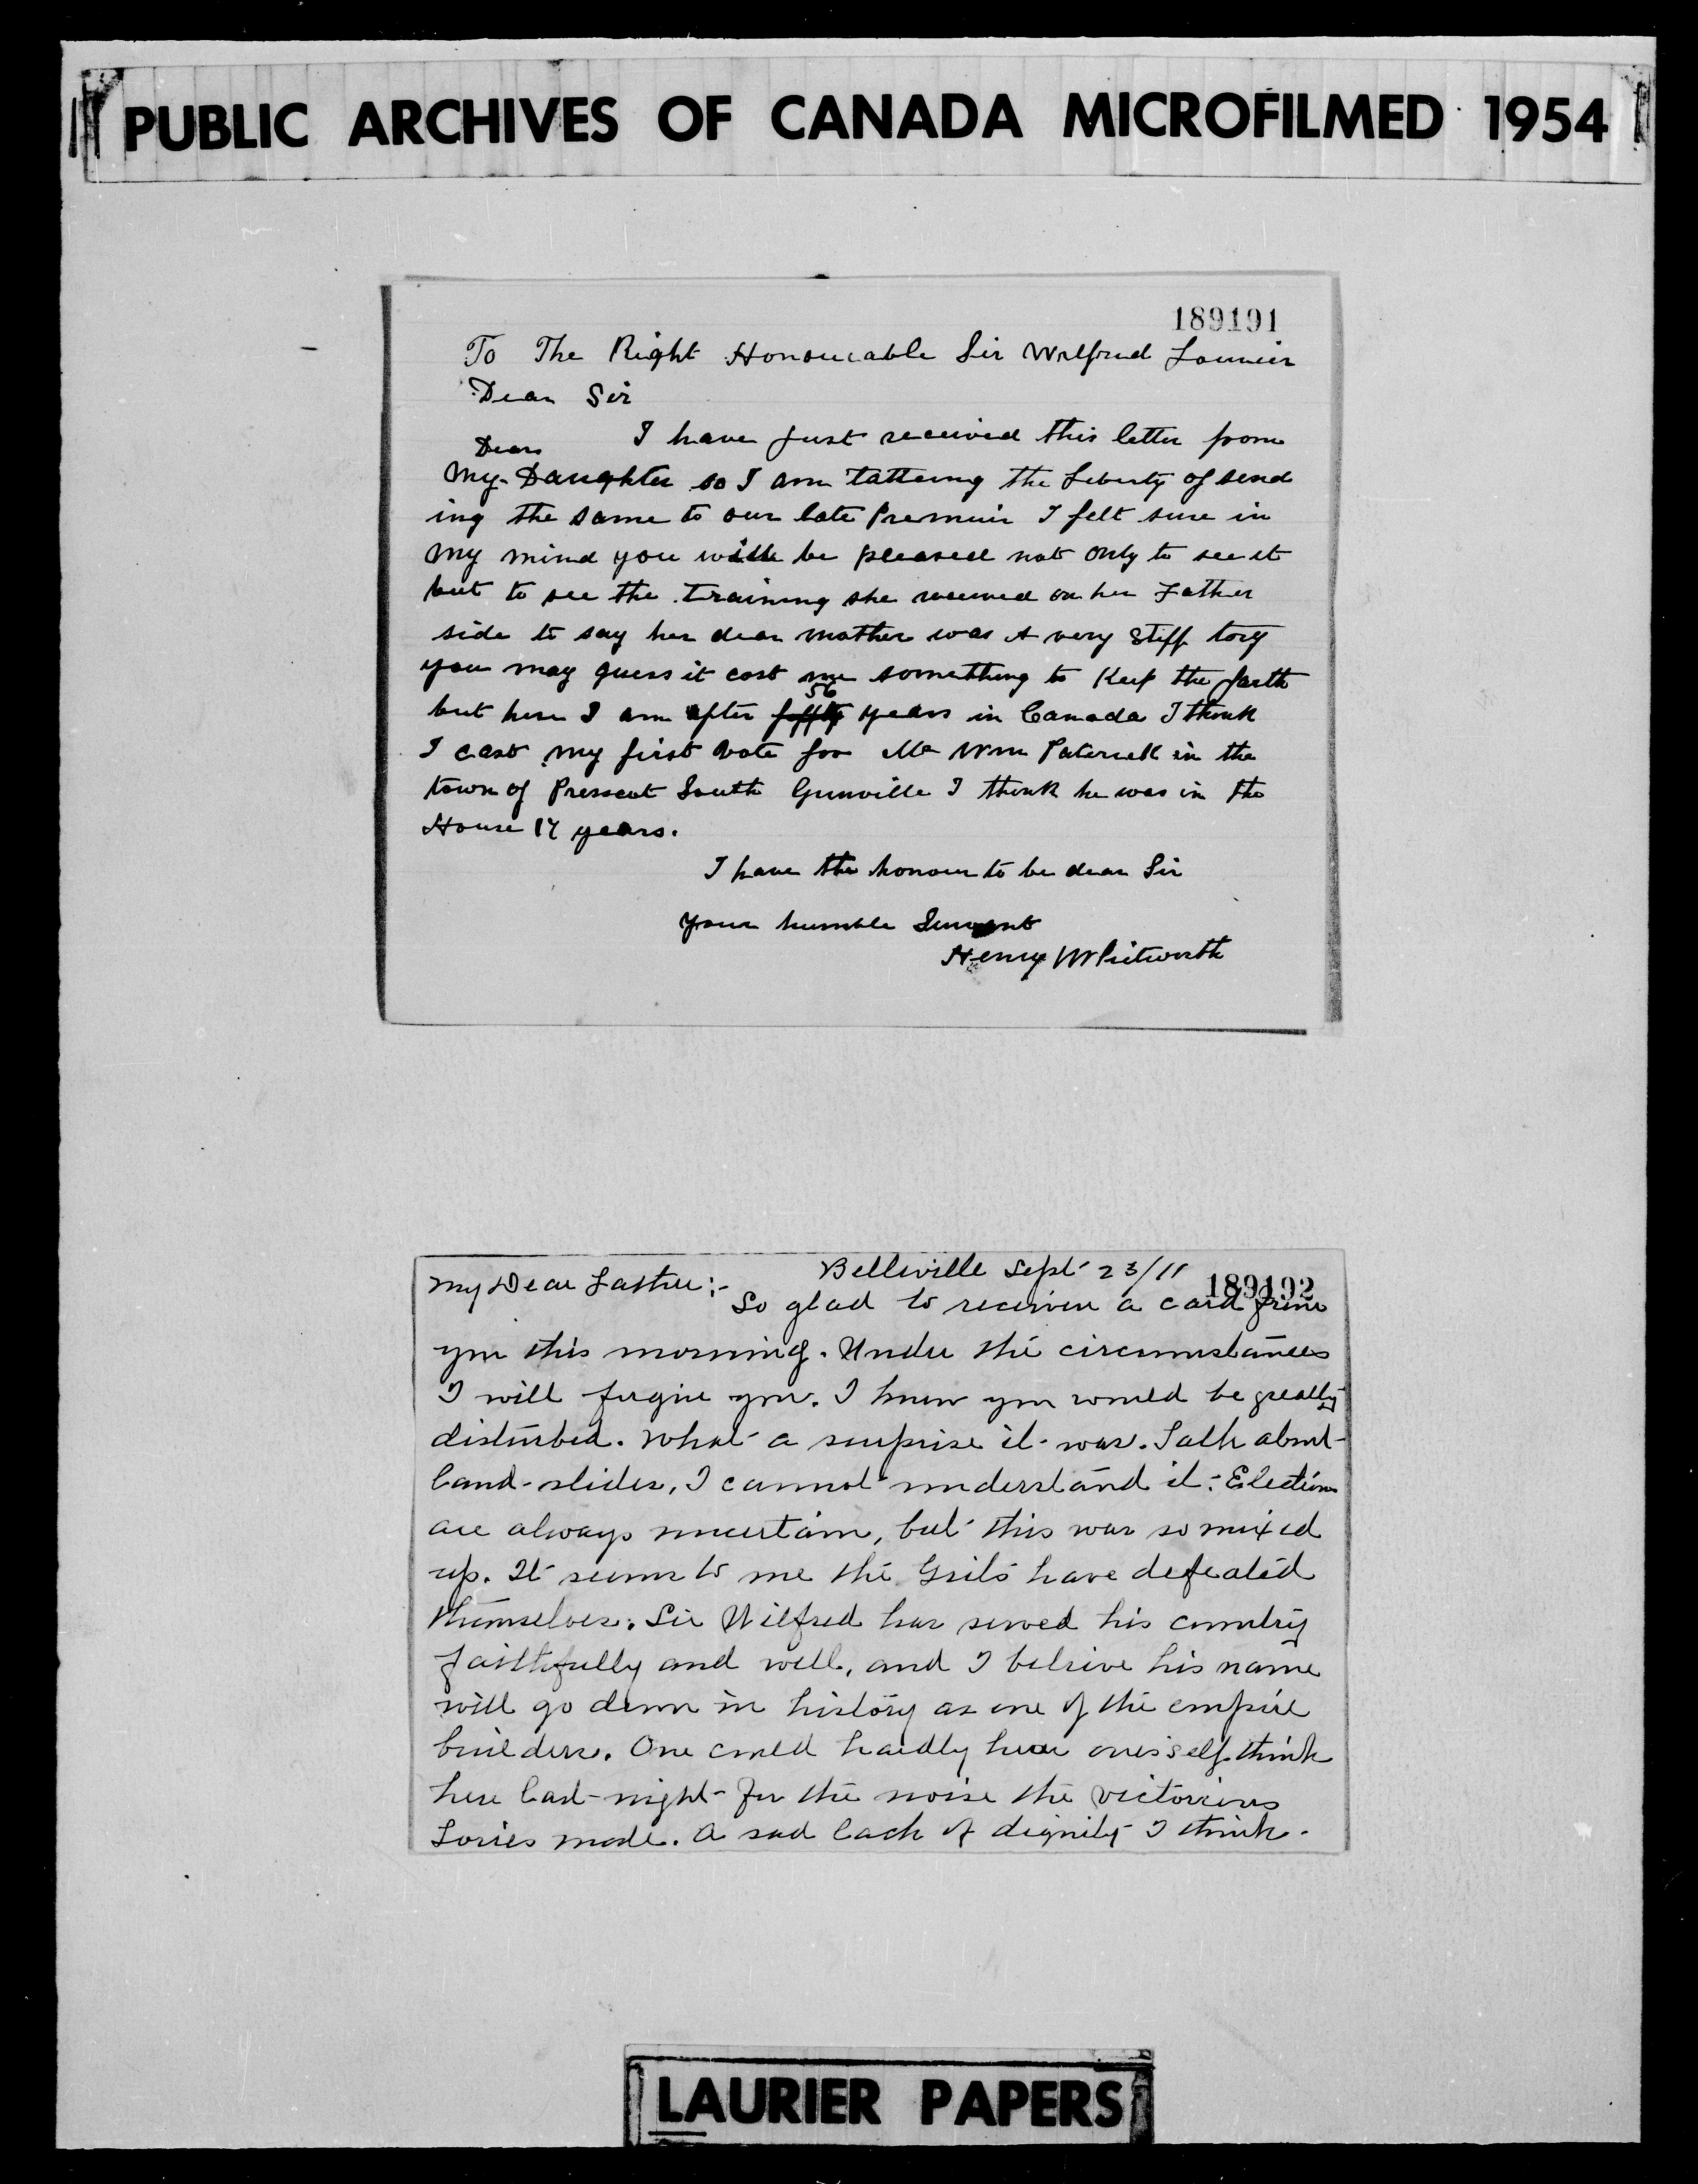 PUBLIC ARCHIVES OF CANADA MICROFILMED 1954
189191
To The Right Honourable Sir Wilfrid Laurier
Dear Sir
I have just received this letter from
Dear
my Daughter so I am tatteing the Liberty of send
ing the same to our late Premuir I felt sure in
my mind you will be pleased not only to see it
but to see the training she received on her Father
side to say her dear mother was A very Stiff tory
you may guess it cost me something to Keep the faith
56
but here I am after years in Canada I think
I cast my first Vote for Mr Wm Paterick in the
town of Prescot South Grenville I think he was in the
House 17 years.
I have the honour to be dear Sir
your humble Servant
Henry Whitworth
Belleville Sept 23/11
189192
My Dear Father:-
So glad to receive a card from
you this morning. Under the circumstances
I will forgive you. I knew you would be greatly
disturbed. What a surprise it was. Talk about
land-slides, I cannot understand it. Elections
are always uncertain, but this was so mixed
up. It seems to me the Grits have defeated
themselves. Sir Wilfred has served his country
faithfully and well, and I beleive his name
will go down in history as one of the empire
builders. One could hardly hear ones self think
here last night for the noise the victorious
Tories made. A sad lack of dignity I think.
LAURIER PAPERS